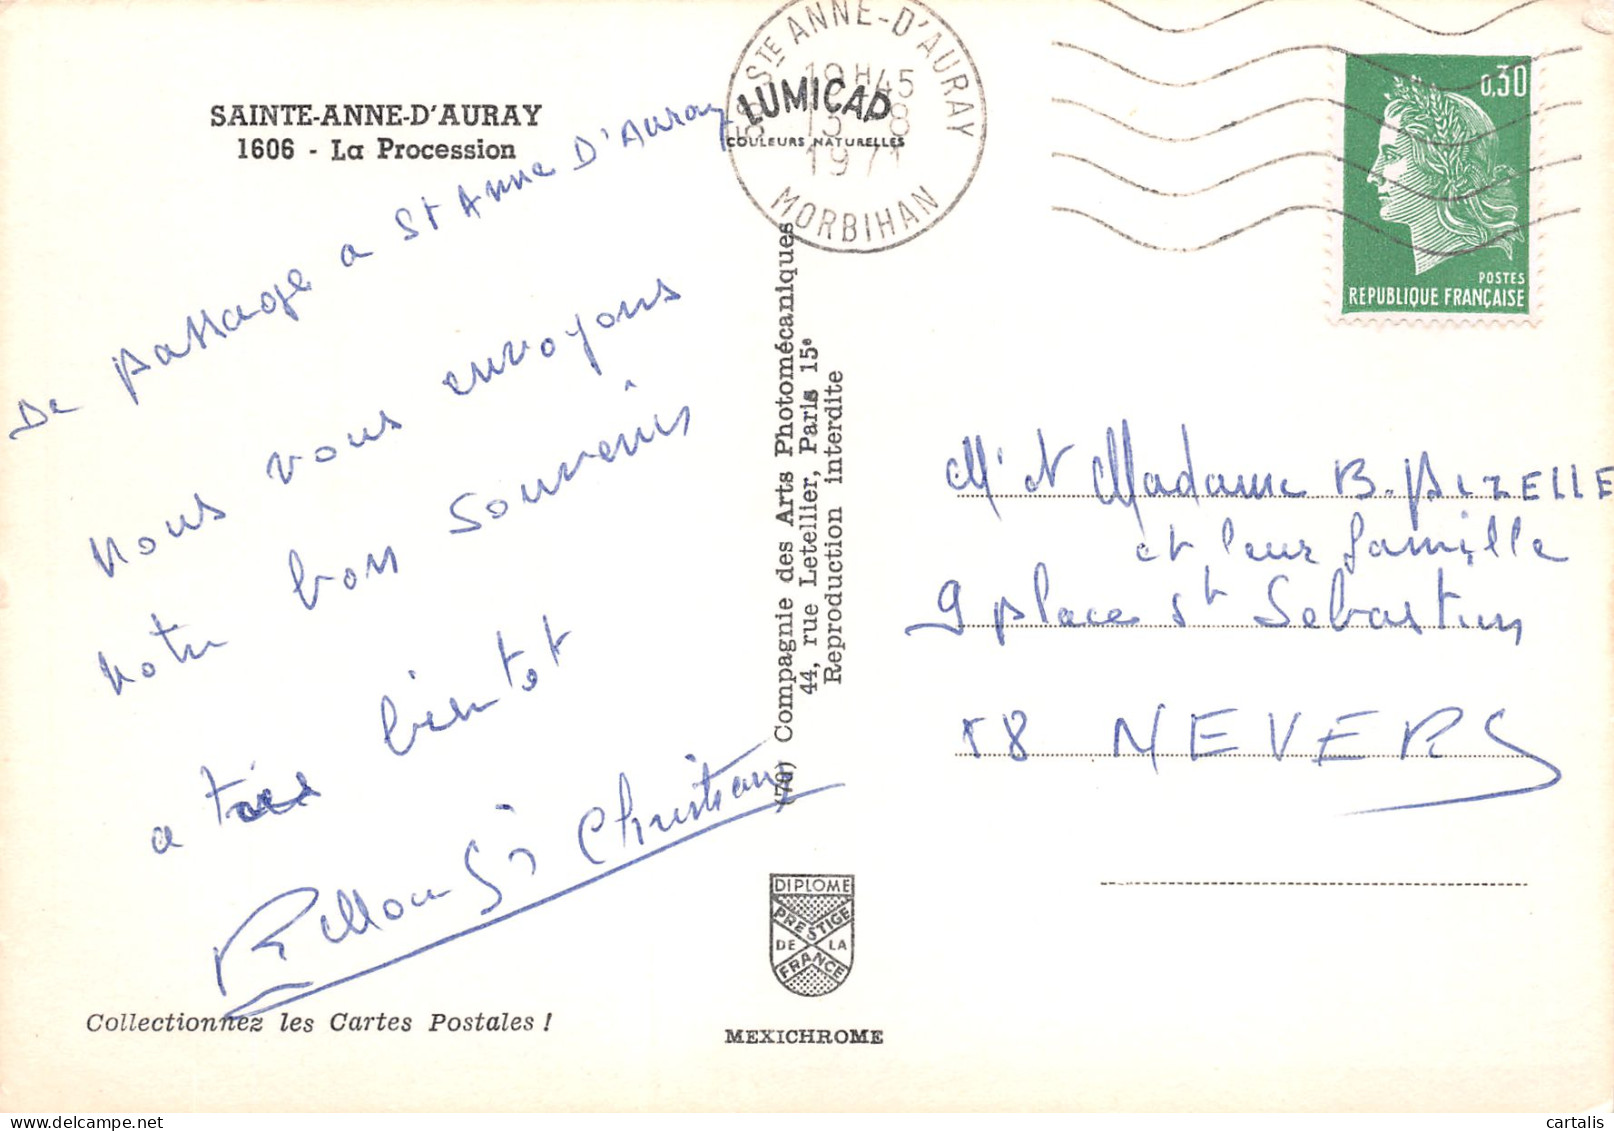 SAINTE-ANNE-D'AURAY
1606 - La Procession
De passage a St Anne D'Auray
nous vous envoyons
notre bon souvenirs
a très bientot
Christiane
Collectionnez les Cartes Postales !
STE ANNE-D'AURAY
18H45
13-8
1971
MORBIHAN
LUMICAP
COULEURS NATURELLES
(78) Compagnie des Arts Photomécaniques
44, rue Letellier, Paris 15e
Reproduction interdite
DIPLOME
PRESTIGE
DE LA
FRANCE
MEXICHROME
0,30
POSTES
REPUBLIQUE FRANÇAISE
Mr et Madame B. PIZELLE
et leur famille
9 place St Sebastien
58 NEVERS
cartalis